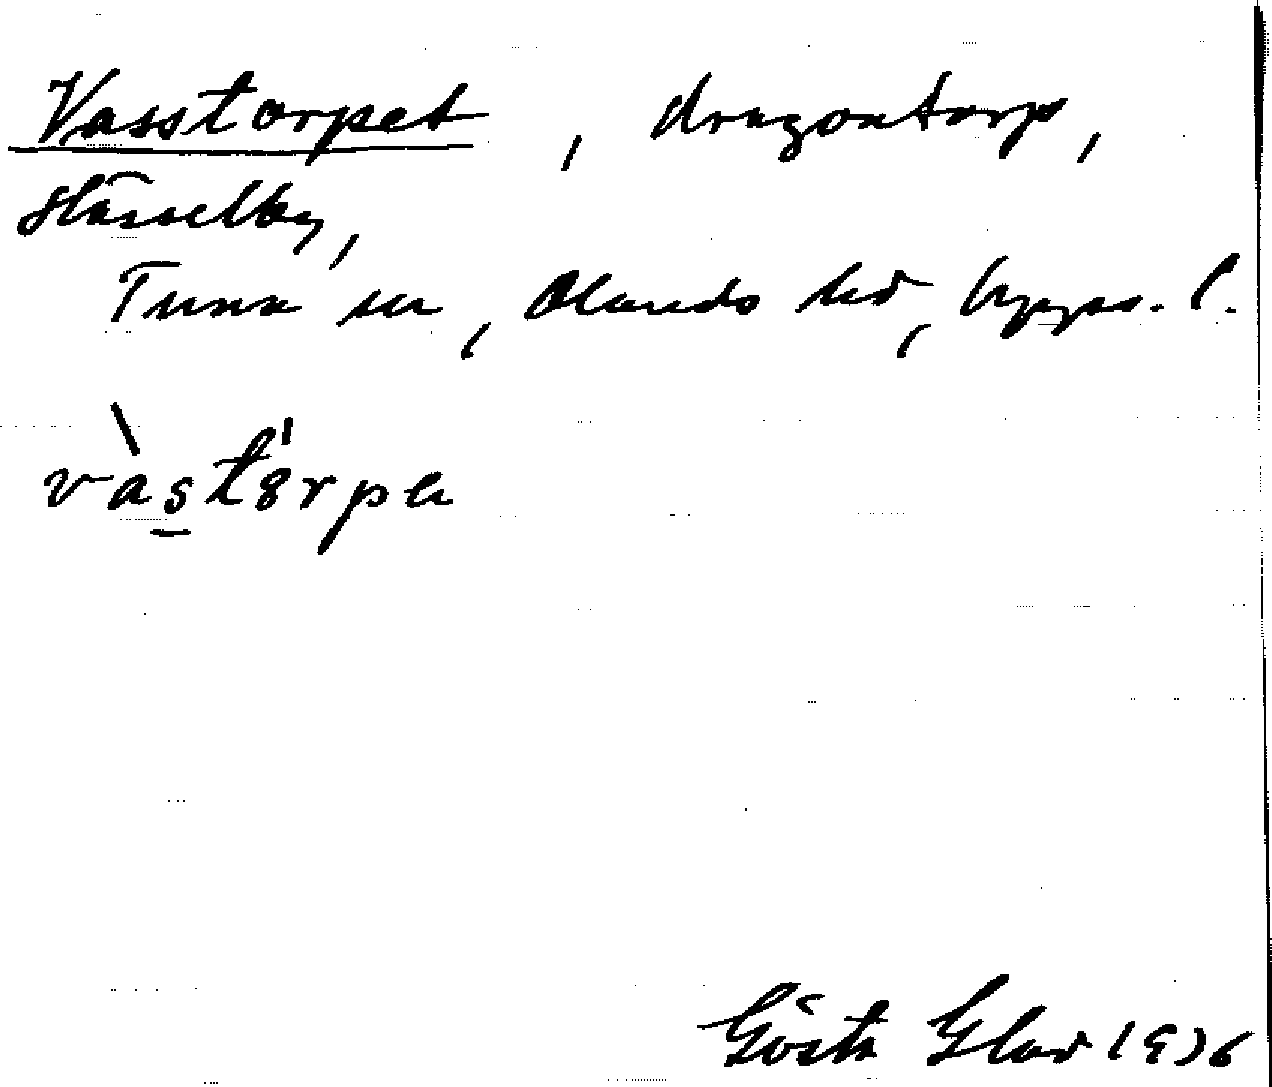 Vasstorpet, dragontorp,
Hässelby,
Tuna sn, Olands hd, Upps. l.
vàstȣ́rpa
Gösta Glad 1936